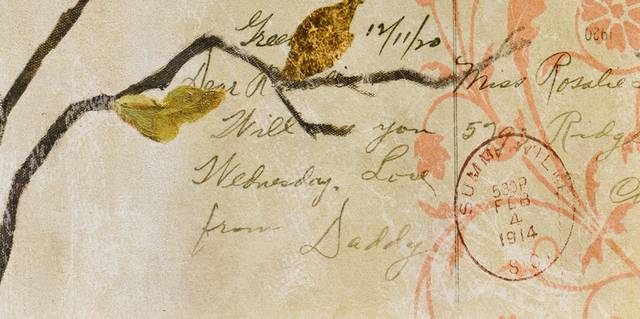 12/11/20
Dear
Will you
Wednesday. Love
from Daddy
Miss Rosalie
Ridg
SUMMERVILLE
530P
FEB
4
1914
S.C.